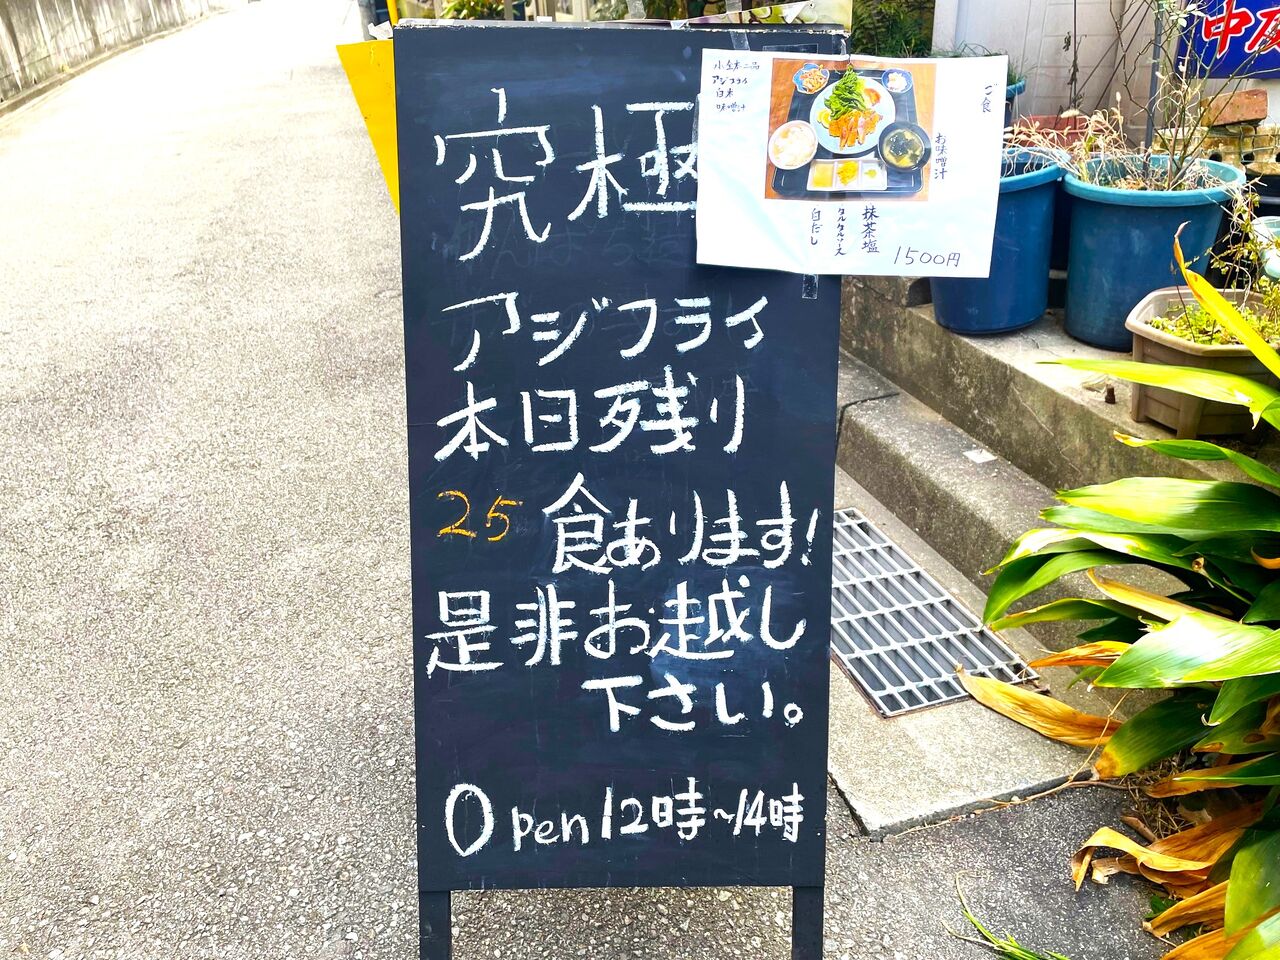 究極
アジフライ
本日残り
25食あります!
是非お越し
下さい。
Open12時~14時
小鉢二品
アジフライ
白米
味噌汁
ご食
お味噌汁
抹茶塩
タルタルソース
白だし
1500円